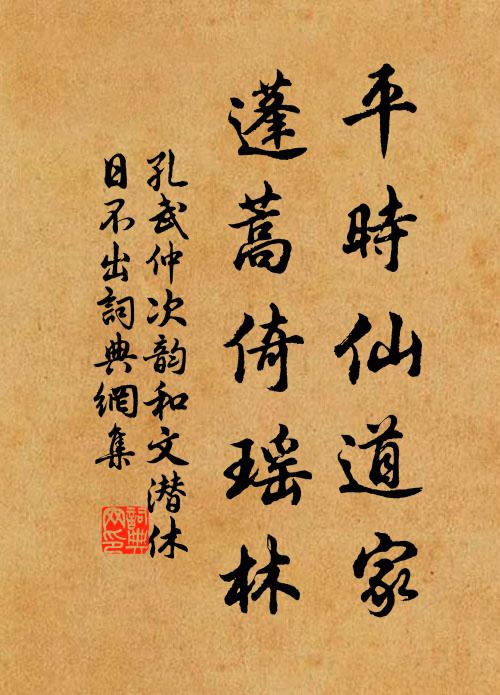 平時仙道家
蓬蒿倚瑶林
孔武仲次韵和文潜休
日不出詞典網集
詞典網印